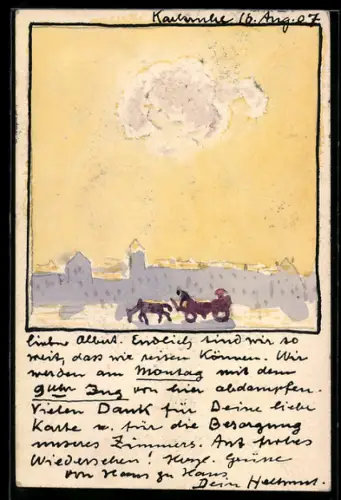 Karlsruhe 16. Aug. 07
Lieber Albert. Endlich sind wir so
weit, dass wir reisen können. Wir
werden am Montag mit dem
9 uhr Zug von hier abdampfen.
Vielen Dank für Deine liebe
Karte u. für die Besorgung
unseres Zimmers. Auf frohes
Wiedersehen! Herzl. Grüsse
von Haus zu Haus
Dein Helmut.